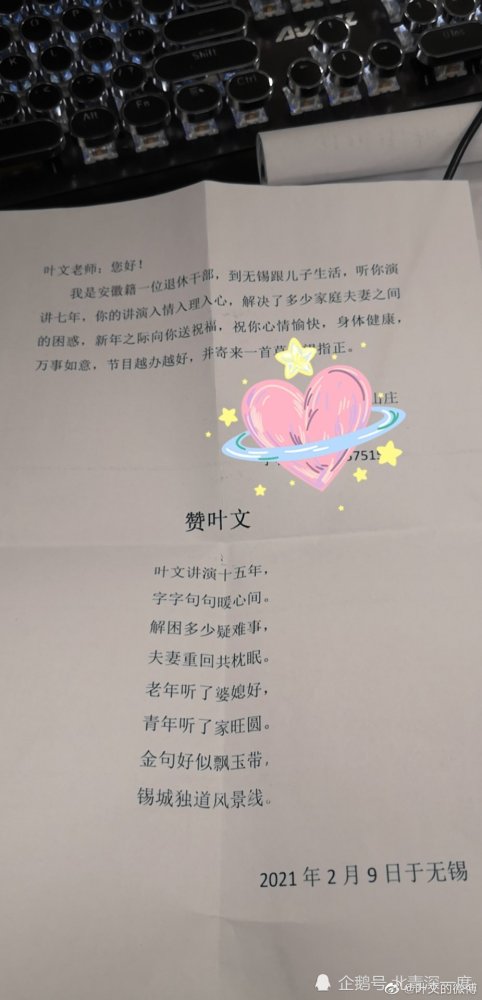 AJAZZ
Shift
Alt
Fn
Ctrl
Ins
叶文老师：您好！
我是安徽籍一位退休干部，到无锡跟儿子生活，听你演
讲七年，你的讲演入情入理入心，解决了多少家庭夫妻之间
的困惑，新年之际向你送祝福，祝你心情愉快，身体健康，
万事如意，节目越办越好，并寄来一首 指正。
山庄
751
赞叶文
叶文讲演十五年，
字字句句暖心间。
解困多少疑难事，
夫妻重回共枕眠。
老年听了婆媳好，
青年听了家旺圆。
金句好似飘玉带，
锡城独道风景线。
2021 年 2 月 9 日于无锡
企鹅号 北青深一度
@叶文的微博